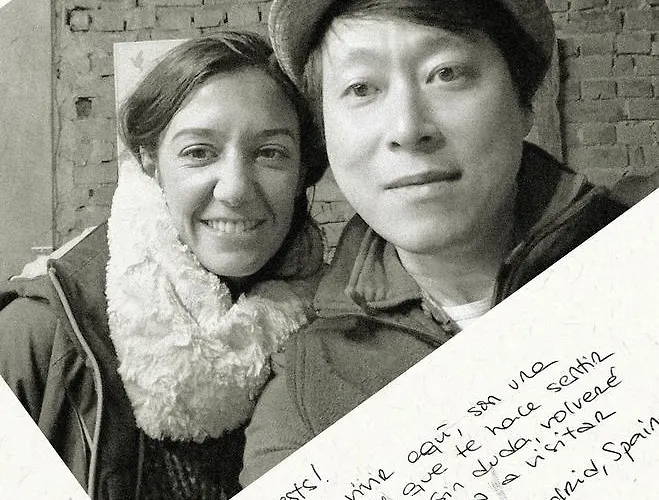 aquí, son una
que te hace sentir
sin duda, volveré
a visitar
Spain